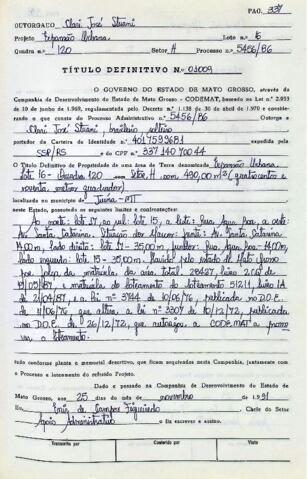 PAG. 337
OUTORGADO Olari José Stiani
Projeto Expansão Urbana Lote n.o 16
Quadra n.o 120 Setor H Processo n.o 5456/86
TÍTULO DEFINITIVO N.o 01009
O GOVERNO DO ESTADO DE MATO GROSSO, através da
Companhia de Desenvolvimento do Estado de Mato Grosso - CODEMAT, baseado na Lei n.o 2.953
de 19 de junho de 1969, regulamentada pelo Decreto n.o 1.138 de 30 de abril de 1970 e considerando
o que consta do Processo Administrativo n.o 5456/86 Outorga a
Olari José Stiani, brasileiro, solteiro
portador da Carteira de Identidade n.o 4017593681 expedida pela
SSP/RS e do CPF n.o 337 140 700 44
o Título Definitivo de Propriedade de uma Área de Terra denominada Expansão Urbana
lote 16 - Quadra 120 com Setor H, com 490,00 m2 (quatrocentos e
noventa metros quadrados)
localizada no município de Juína - MT
neste Estado, possuindo os seguintes limites e confrontações:
Ao norte: lote 17, ao sul: lote 15, a leste: Rua a oeste:
Av. Santa Catarina. Situação dos Marcos: frente: Av. Santa Catarina
14,00 m, lado direito: lote 17 - 35,00 m, fundos: Rua 14,00 m,
lado esquerdo: lote 15 - 35,00 m. Havido pelo estado de Mato Grosso
por força da matrícula da área total: 28427, livro 2 de
e matrícula do loteamento 51211, livro 1A
de 2/04/87, e a lei n.o 3744 de 10/06/76, publicada no D.O.E.
11/06/76 que altera a lei n.o 3307 de 18/12/72, publicada
no D.O.E. de 26/12/72, que autoriza a CODEMAT a promo
ver o loteamento.
tudo conforme planta e memorial descritivo, que ficam arquivados nesta Companhia, juntamente com
o Processo e loteamento do referido Projeto.
Dado e passado na Companhia de Desenvolvimento do Estado de
Mato Grosso, aos 25 dias do mês de novembro de 1.991
Eu Enir de Campos Figueiredo Chefe do Setor
Apoio Administrativo o fiz escrever e assino.
Transcrito por Conferido por Visto